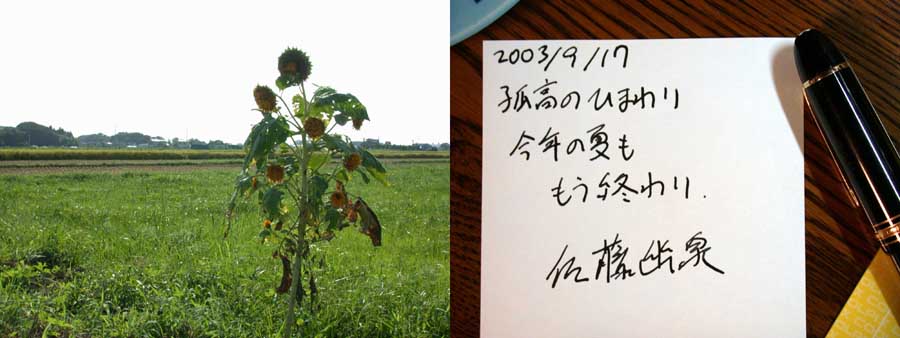 2003/9/17
孤高のひまわり
今年の夏も
もう終わり.
佐藤出泉